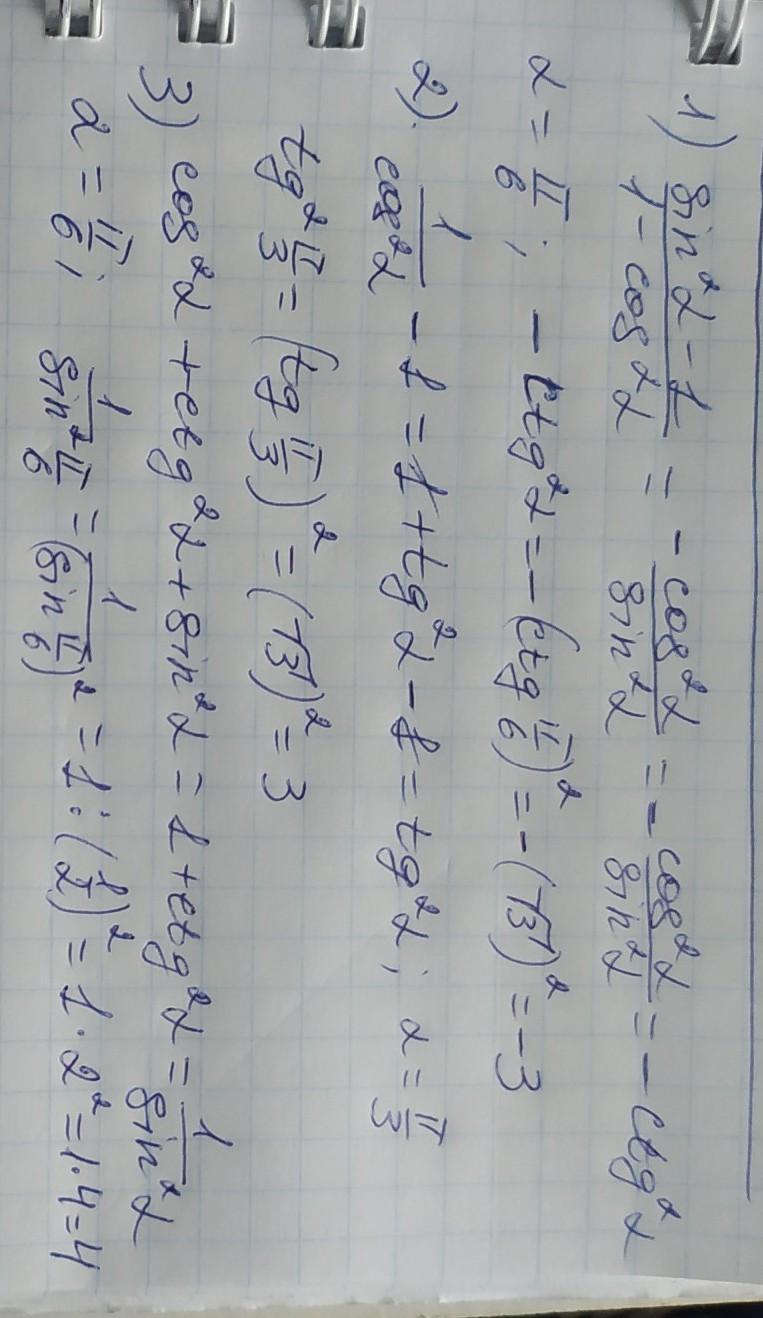 1) (sin²α - 1)/(1 - cos²α) = - cos²α/sin²α = - cos²α/sin²α = - ctg²α
α = π/6; - ctg²α = - (ctg π/6)² = - (√3)² = -3
2) 1/cos²α - 1 = 1 + tg²α - 1 = tg²α; α = π/3
tg² π/3 = (tg π/3)² = (√3)² = 3
3) cos²α + ctg²α + sin²α = 1 + ctg²α = 1/sin²α
α = π/6; 1/sin² π/6 = 1/(sin π/6)² = 1 : (1/2)² = 1 · 2² = 1 · 4 = 4